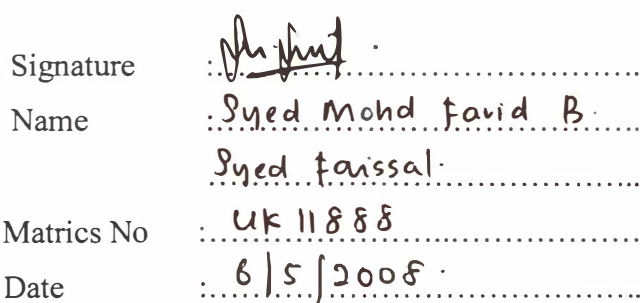 Signature :
Name : Syed Mohd Farid B.
Syed Faissal.
Matrics No : UK 11888
Date : 6/5/2008.